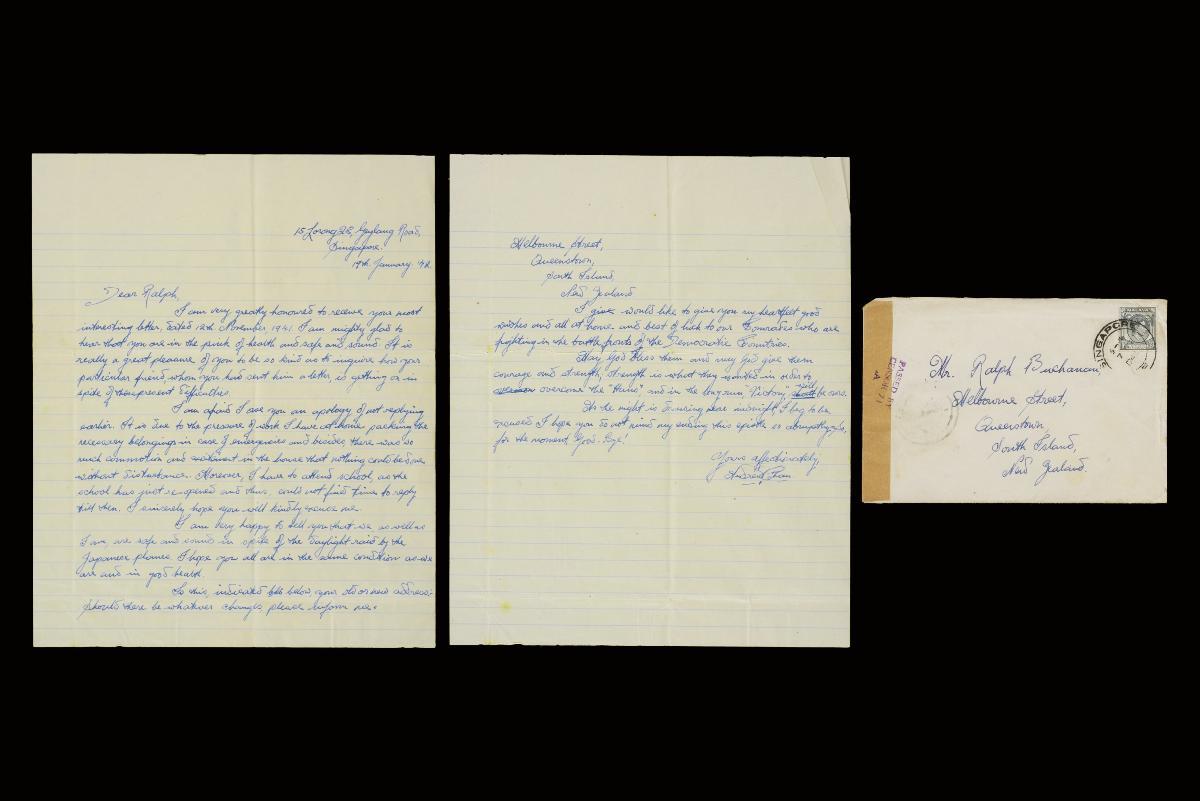 15 Lorong 28, Geylang Road,
Singapore.
19th January '42.
Dear Ralph,
I am very greatly honoured to receive your most
interesting letter, dated 12th November 1941. I am mighty glad to
hear that you are in the pink of health and safe and sound. It is
really a great pleasure of you to be so kind as to inquire how your
particular friend, whom you had sent him a letter, is getting on in
spite of the present difficulties.
I am afraid I owe you an apology of not replying
earlier. It is due to the pressure of work I have at home packing the
necessary belongings in case of emergencies and besides, there was so
much commotion and excitement in the house that nothing could be done
without disturbance. Moreover, I have to attend school, as the
school has just re-opened and thus, could not find time to reply
till then. I sincerely hope you will kindly excuse me.
I am very happy to tell you that we as well as
I am, are safe and sound in spite of the daylight raid by the
Japanese planes. I hope you all are in the same condition as we
are and in good health.
Is this, indicated below, your old or new address:
Should there be whatever changes, please inform me.
Melbourne Street,
Queenstown,
South Island,
New Zealand
I give would like to give you my heartfelt good
wishes and all at home and best of luck to our Comrades who are
fighting in the battle fronts of the Democratic Countries.
May God bless them and may God give them
courage and strength, strength is what they wanted in order to
overcome the "Huns" and in the long run, "Victory" will be ours.
As the night is drawing near midnight, I beg to be
excused. I hope you do not mind my ending this epistle so abruptly, so,
for the moment, Good-Bye!
Yours affectionately,
PASSED BY
CENSOR 71
A
SINGAPORE
MALAYA
Mr. Ralph Buchanan,
Melbourne Street,
Queenstown,
South Island,
New Zealand.